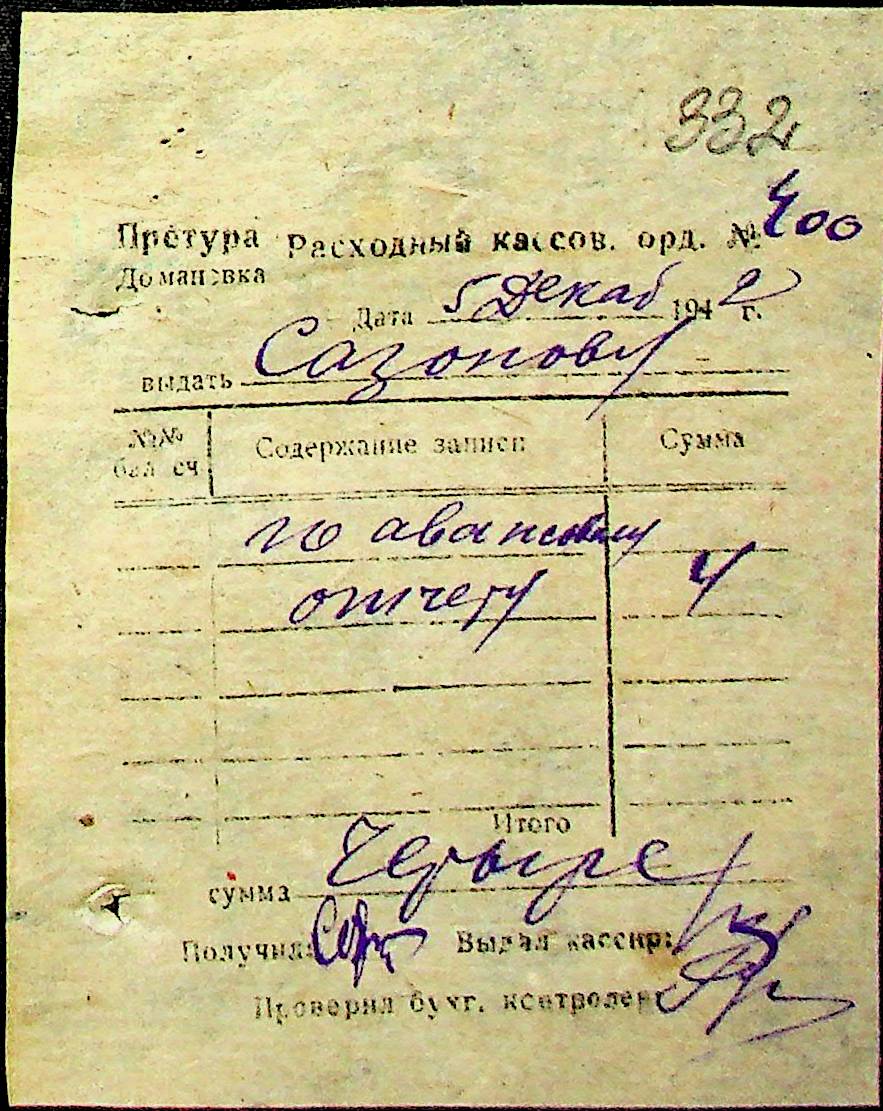 332
Претура Расходный кассов. орд. № 400
Домановка
Дата 5 Декаб 1942 г.
выдать Сазонову
№№ бал сч Содержание записи Сумма
по авансовому
отчету 4
Итого
сумма Четыре
Получил: Выдал кассир:
Проверил бухг. контролер